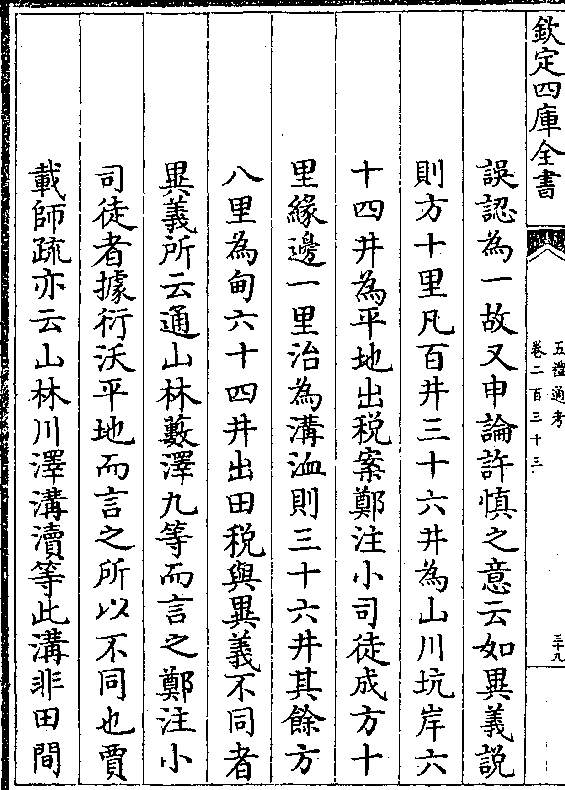 欽定四庫全書
五禮通考
卷二百三十三
三十九
誤認為一故又申論許慎之意云如異義說
則方十里凡百井三十六井為山川坑岸六
十四井為平地出税案鄭注小司徒成方十
里緣邊一里治為溝洫則三十六井其餘方
八里為甸六十四井出田税與異義不同者
異義所云通山林藪澤九等而言之鄭注小
司徒者據衍沃平地而言之所以不同也賈
載師疏亦云山林川澤溝瀆等此溝非田間